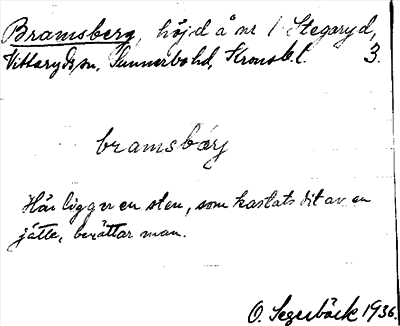 Bramsberg, höjd å nr 1 Stegaryd,
Vittaryds sn, Sunnerbo hd, Kronob. l. 3.
bramsbærj
Här ligger en sten, som kastats dit av en
jätte, berättar man.
O. Segerbäck 1936.